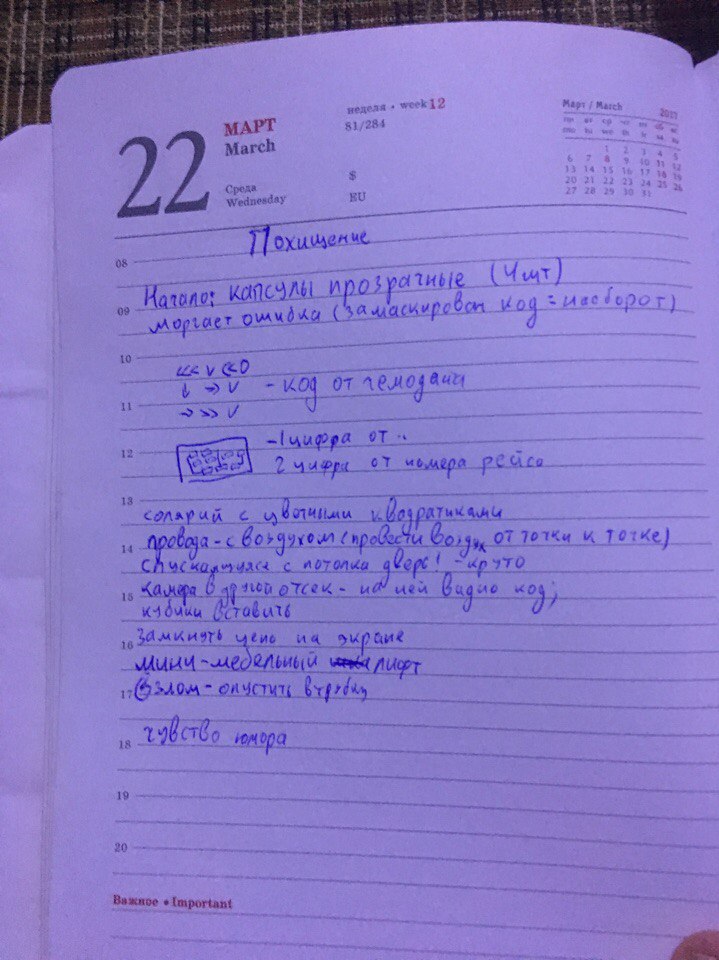 22
МАРТ
March
Среда
Wednesday
неделя • week 12
81/284
$
EU
Март / March 2017
пн вт ср чт пт сб вс
mo tu we th fr sa su
1 2 3 4 5
6 7 8 9 10 11 12
13 14 15 16 17 18 19
20 21 22 23 24 25 26
27 28 29 30 31
Похищение
08
Начало: капсулы прозрачные (4 шт)
09 моргает ошибка (замаскирован код = наоборот)
10
<< v << 0
↓ → v - код от чемодана
11
→ >> v
- 1 цифра от ..
12
2 цифра от номера рейса
13
солярий с цветными квадратиками
провода - с воздухом (провести воздух от точки к точке)
14
спускающаяся с потолка дверь! - круто
камера в другой отсек - на ней видно код;
15
кубики вставить
16 замкнуть цепь на экране
мини-мебельный лифт
17 взлом - опустить в трубку
18 чувство юмора
19
20
Важное • Important